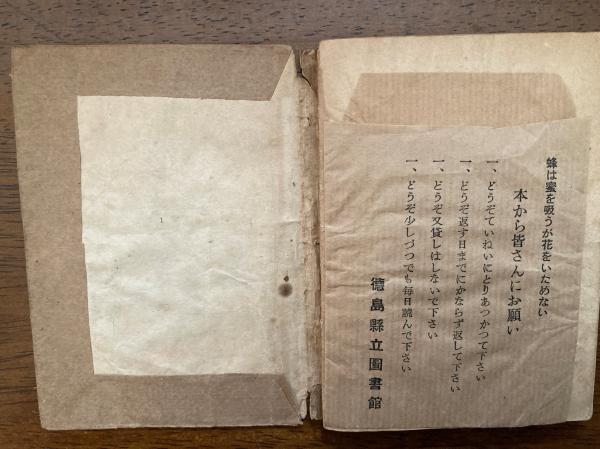 蜂は蜜を吸うが花をいためない
本から皆さんにお願い
一、どうぞていねいにとりあつかつて下さい
一、どうぞ返す日までにかならず返して下さい
一、どうぞ又貸しはしないで下さい
一、どうぞ少しづつでも毎日読んで下さい
德島縣立圖書館